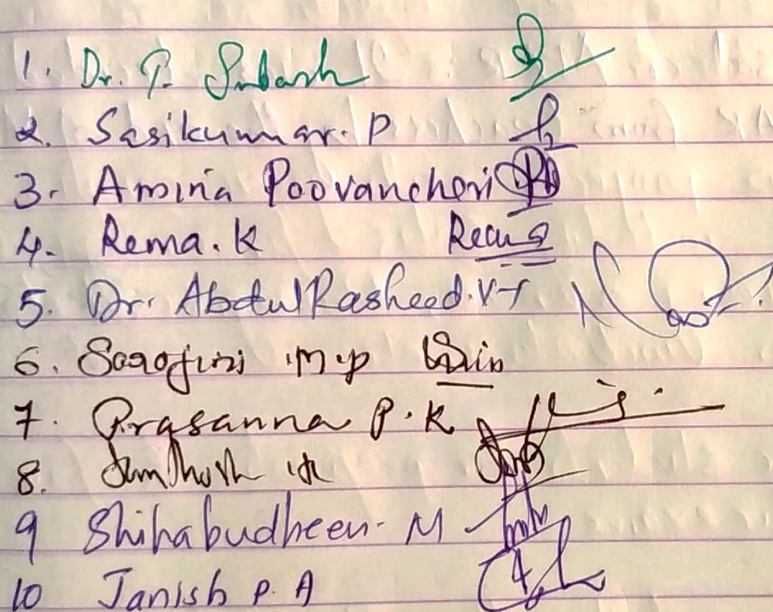 1. Dr. P. Subash
2. Sasikumar. P
3. Amina Poovancheri
4. Rema. K
5. Dr. Abdul Rasheed. V-T
6. Sarojini M.p
7. Prasanna P. K
8. Santhosh
9 Shihabudheen. M
10 Janish P. A